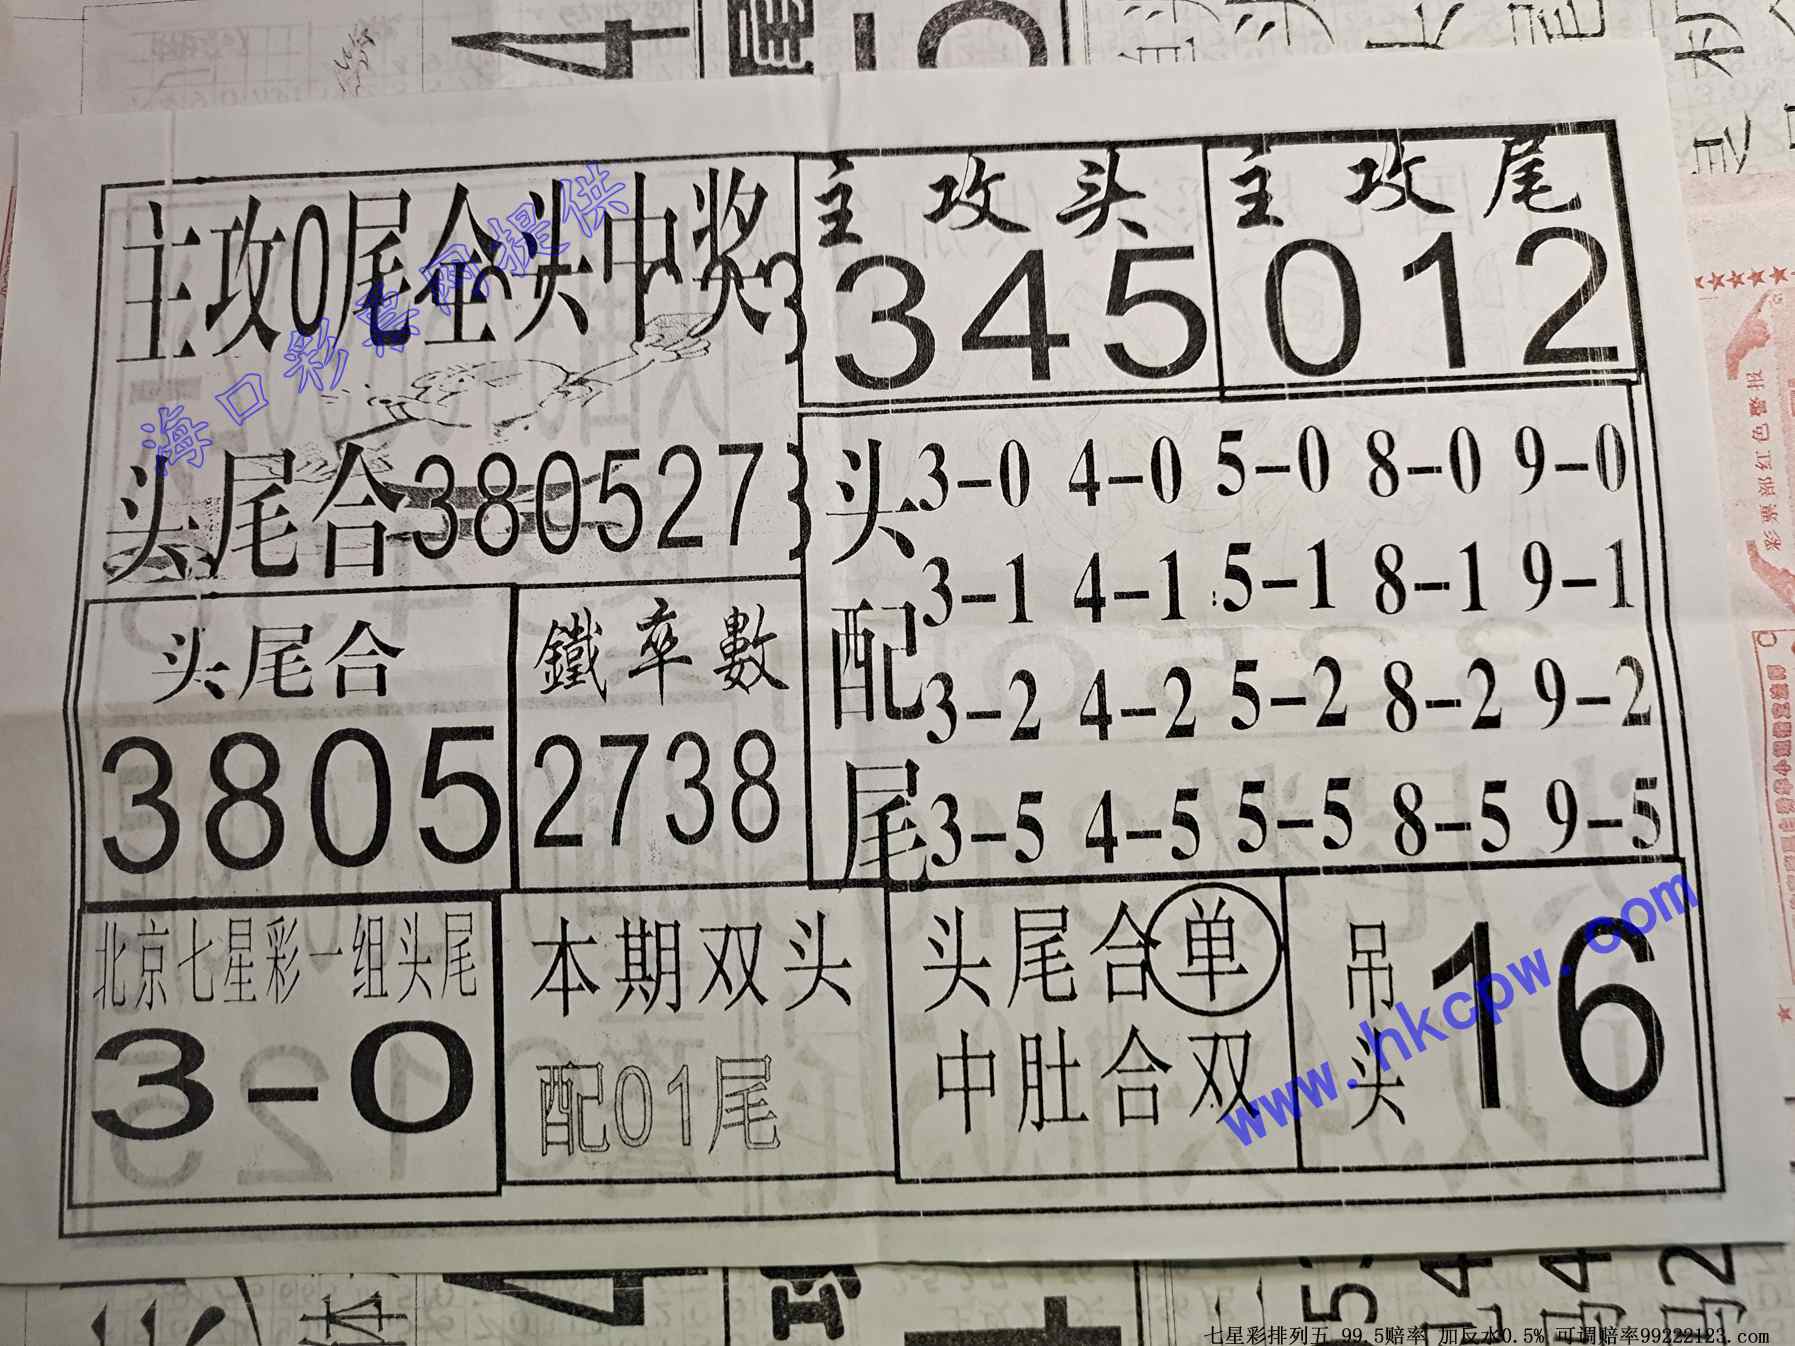 主攻0尾全头中奖
海口彩票网提供
头尾合380527
主攻头
345
主攻尾
012
头配尾
3-0 4-0 5-0 8-0 9-0
3-1 4-1 5-1 8-1 9-1
3-2 4-2 5-2 8-2 9-2
3-5 4-5 5-5 8-5 9-5
头尾合
3805
鐵率數
2738
北京七星彩一组头尾
3-0
本期双头
配01尾
头尾合单
中肚合双
吊头16
www.hkcpw.com
彩票部红色警报
七星彩排列五 99.5赔率 加反水0.5% 可调赔率99222123.com